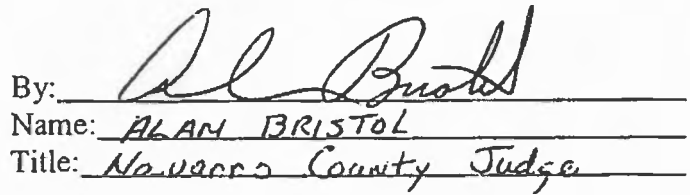 By: Alan Bristol
Name: ALAN BRISTOL
Title: Navarro County Judge